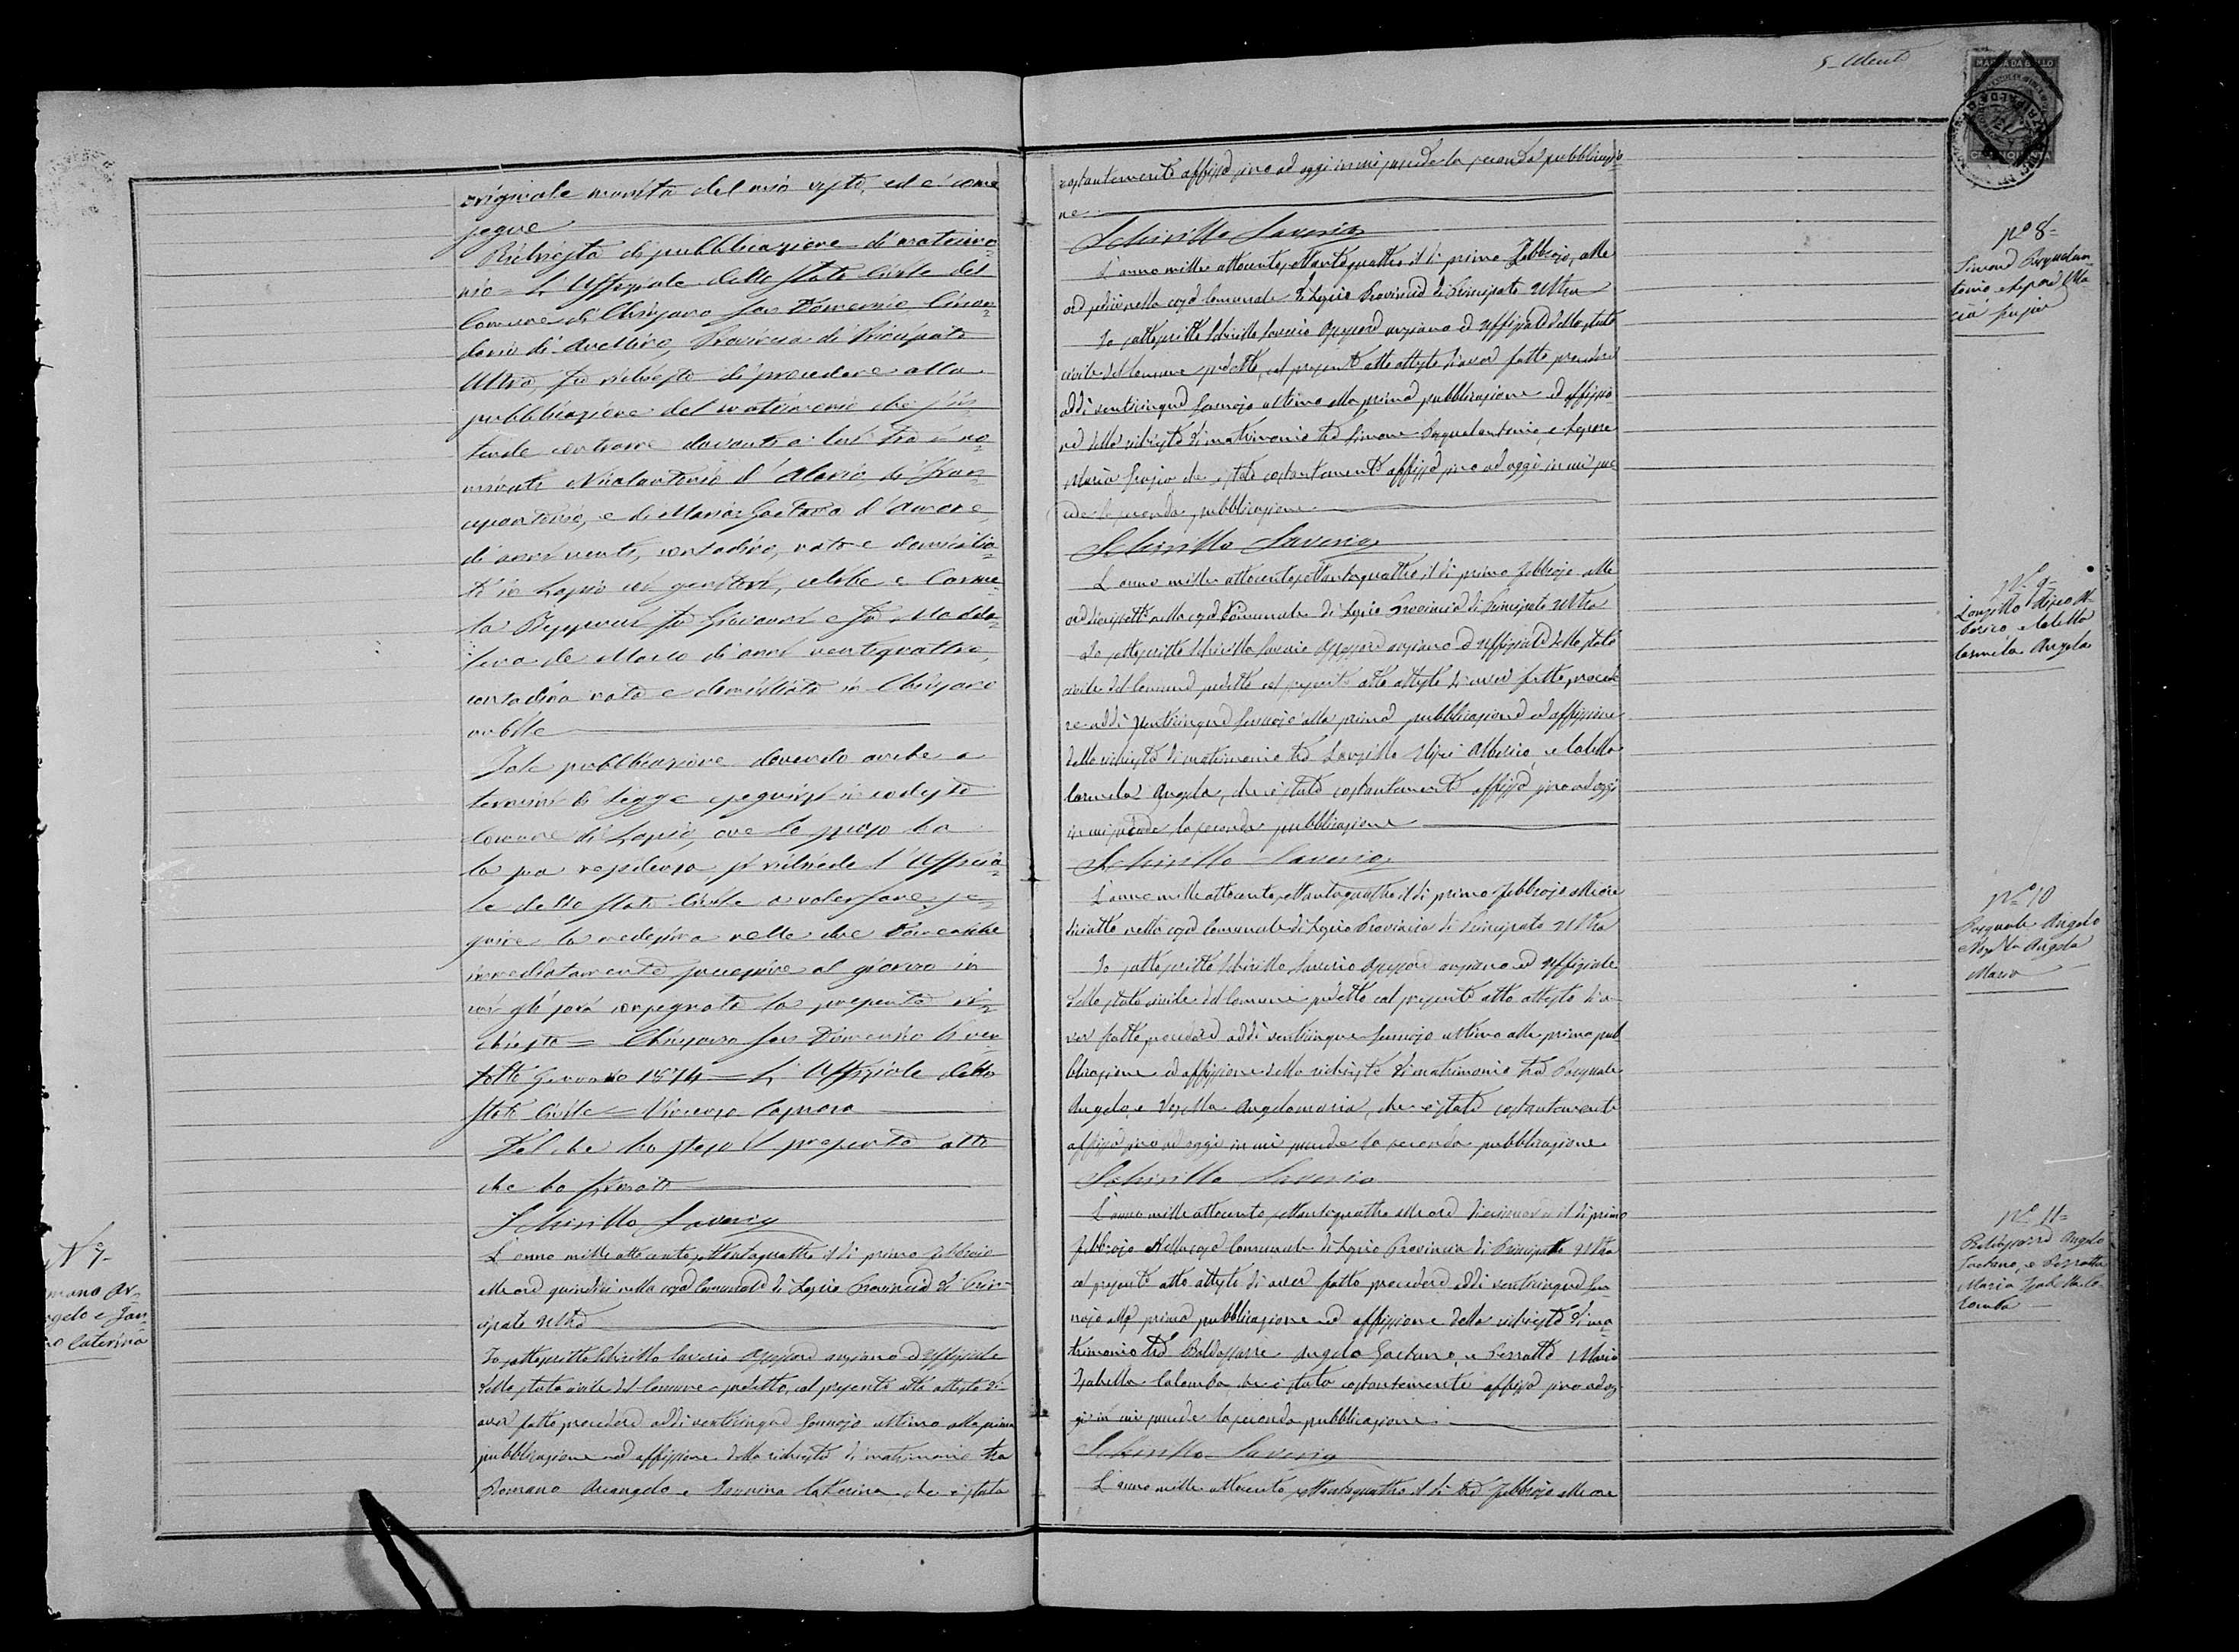 originale munita del mio visto, ed è come
segue
Richiesta di pubblicazione di matrimo=
nio = L'Uffiziale dello Stato Civile del
Comune di Chiusano San Domenico Circon=
dario di Avellino, Provincia di Principato
Ultra, fa richiesta di procedere alla
pubblicazione del matrimonio che s'in=
tende contrarre davanti a lui tra i no=
minati Nicolantonio d'Alesio, di
e di Maria Gaetana d'Amore,
di anni venti, contadino, nato e domicilia=
to in Lapio coi genitori, celibe e Carme=
la fu Giovanni e fu Madda=
lena de Marco di anni ventiquattro,
contadina nata e domiciliata in Chiusano
nubile
Tale pubblicazione dovendo anche a
termini di legge eseguirsi in codesto
Comune di Lapio, ove lo sposo ha
la sua residenza, si richiede l'Uffizia=
le dello Stato Civile a voler fare ese=
guire la medesima nelle due Domeniche
immediatamente successive al giorno in
cui gli sarà consegnata la presente ri=
chiesta = Chiusano San Domenico li ven=
totto Gennaio 1874 = L'Uffiziale dello
Stato Civile = Vincenzo
Del che ho steso il presente atto
che ho firmato
Schirillo Saverio
N° 7-
Romano Ar=
cangelo e
Caterina
L'anno mille ottocento settantaquattro il dì primo Febbraio
alle ore quindici nella casa Comunale di Lapio Provincia di Prin=
cipato Ultra
Io sottoscritto Schirillo Saverio Assessore anziano ed Uffiziale
dello stato civile del Comune suddetto, col presente atto attesto di
aver fatto procedere addì venticinque Gennajo ultimo alla prima
pubblicazione ed affissione della richiesta di matrimonio tra
Romano Arcangelo e Caterina che è stata
5-
MARCA DA BOLLO
costantemente affissa sino ad oggi in cui succede la seconda pubblicazio
ne
Schirillo Saverio
N° 8-
Simone Pasqualan=
tonio e Lepore Ma=
ria Grazia
L'anno mille ottocento settantaquattro il dì primo Febbrajo, alle
ore sedici nella casa Comunale di Lapio Provincia di Principato Ultra
Io sottoscritto Schirillo Saverio Assessore anziano ed Uffiziale dello stato
civile del Comune suddetto, col presente atto attesto d'aver fatto procedere
addì venticinque Gennajo ultimo alla prima pubblicazione ed affissio=
ne della richiesta di matrimonio tra Simone Pasqualantonio, e Lepore
Maria Grazia che è stata costantemente affissa sino ad oggi in cui suc
cede la seconda pubblicazione
Schirillo Saverio
N° 9-
e
Carmela Angela
L'anno mille ottocento settantaquattro il dì primo Febbrajo alle
ore diciassette nella casa Comunale di Lapio Provincia di Principato Ultra
Io sottoscritto Schirillo Saverio Assessore anziano ed Uffiziale dello stato
civile del Comune suddetto col presente atto attesto di aver fatto procede
re addì venticinque Gennajo alla prima pubblicazione ed affissione
della richiesta di matrimonio tra e
Carmela Angela, che è stata costantemente affissa sino ad oggi
in cui succede la seconda pubblicazione
Schirillo Saverio
N° 10
Pasquale Angelo
e Angela
Maria
L'anno mille ottocento settantaquattro il dì primo Febbrajo alle ore
diciotto nella casa Comunale di Lapio Provincia di Principato Ultra
Io sottoscritto Schirillo Saverio Assessore anziano ed Uffiziale
dello stato civile del Comune suddetto col presente atto attesto di a=
ver fatto procedere addì venticinque Gennajo ultimo alla prima pub
blicazione ed affissione della richiesta di matrimonio tra Pasquale
Angelo, e Angelamaria, che è stata costantemente
affissa sino ad oggi in cui succede la seconda pubblicazione
Schirillo Saverio
N° 11-
Baldassarre Angelo
Gaetano, e
Maria Isabella Co=
lomba
L'anno mille ottocento settantaquattro alle ore diecinove il dì primo
Febbrajo nella casa Comunale di Lapio Provincia di Principato Ultra
col presente atto attesto di aver fatto procedere addì venticinque Gen=
najo alla prima pubblicazione ed affissione della richiesta di ma=
trimonio tra Baldassarre Angelo Gaetano, e Maria
Isabella Colomba che è stata costantemente affissa sino ad og
gi in cui succede la seconda pubblicazione
Schirillo Saverio
L'anno mille ottocento settantaquattro il dì tre Febbrajo alle ore